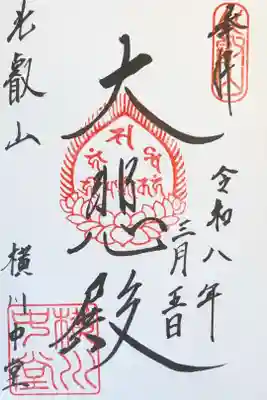 奉拝
令和八年
三月五日
大悲殿
比叡山
横川中堂
横川
中堂